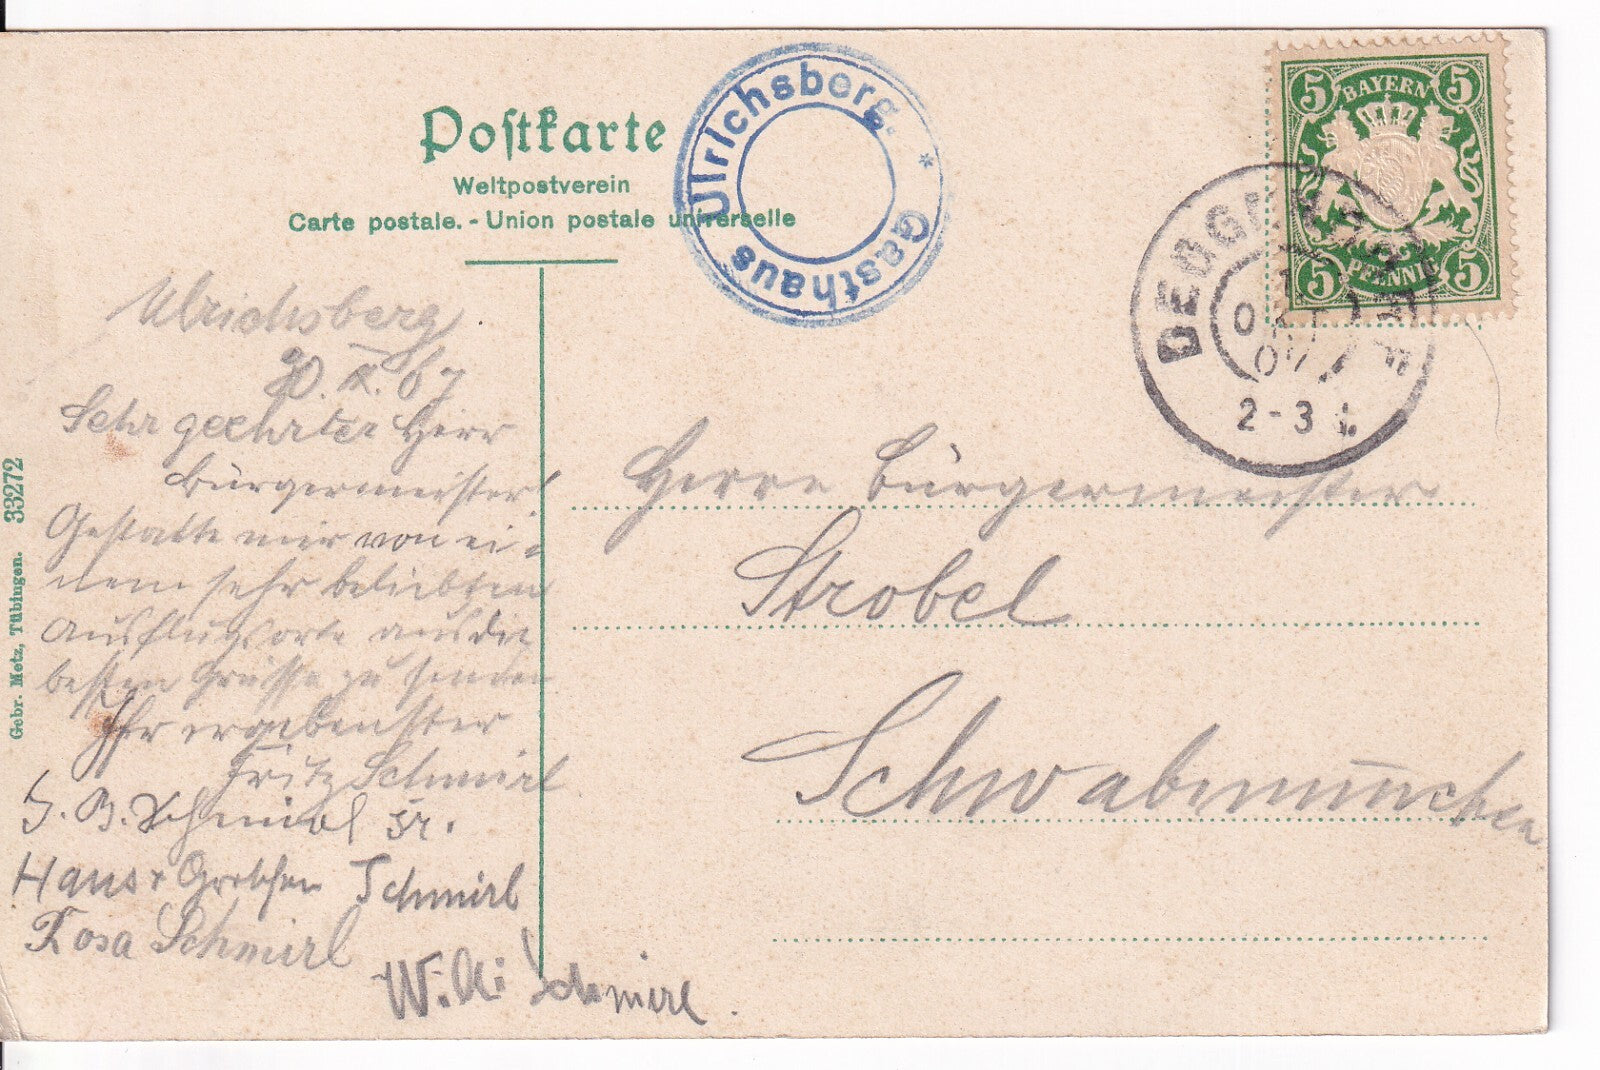 Postkarte
Weltpostverein
Carte postale. - Union postale universelle
Ulrichsberg. * Gasthaus
BAYERN
5 5
5 5
PFENNIG
DEGGENDORF
OKT
07
2-3
Ulrichsberg
Sehr geehrter Herr
Bürgermeister!
Gestatte mir von ei-
nem sehr beliebten
Ausflugsorte aus die
besten Grüsse zu senden
Ihr ergebenster
Fritz Schmirl
Schmirl sr.
Hans + Gretchen Schmirl
Rosa Schmirl
Willi Schmirl.
Herrn Bürgermeister
Strobel
Schwabmünchen
Gebr. Metz, Tübingen. 33272